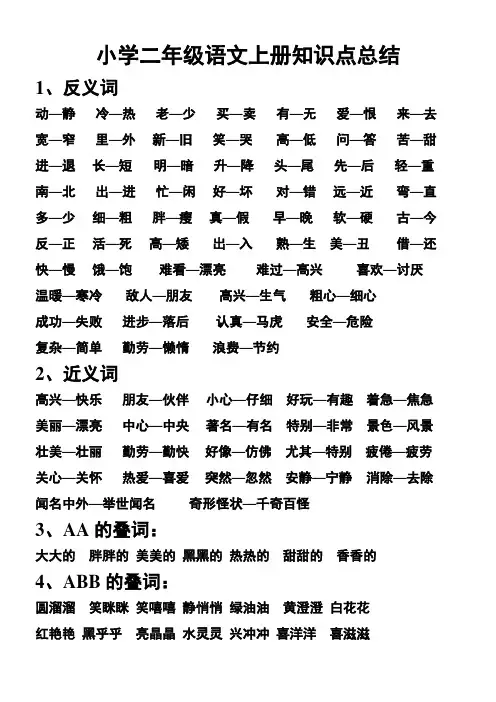 小学二年级语文上册知识点总结
1、反义词
动—静 冷—热 老—少 买—卖 有—无 爱—恨 来—去
宽—窄 里—外 新—旧 笑—哭 高—低 问—答 苦—甜
进—退 长—短 明—暗 升—降 头—尾 先—后 轻—重
南—北 出—进 忙—闲 好—坏 对—错 远—近 弯—直
多—少 细—粗 胖—瘦 真—假 早—晚 软—硬 古—今
反—正 活—死 高—矮 出—入 熟—生 美—丑 借—还
快—慢 饿—饱 难看—漂亮 难过—高兴 喜欢—讨厌
温暖—寒冷 敌人—朋友 高兴—生气 粗心—细心
成功—失败 进步—落后 认真—马虎 安全—危险
复杂—简单 勤劳—懒惰 浪费—节约
2、近义词
高兴—快乐 朋友—伙伴 小心—仔细 好玩—有趣 着急—焦急
美丽—漂亮 中心—中央 著名—有名 特别—非常 景色—风景
壮美—壮丽 勤劳—勤快 好像—仿佛 尤其—特别 疲倦—疲劳
关心—关怀 热爱—喜爱 突然—忽然 安静—宁静 消除—去除
闻名中外—举世闻名 奇形怪状—千奇百怪
3、AA 的叠词：
大大的 胖胖的 美美的 黑黑的 热热的 甜甜的 香香的
4、ABB 的叠词：
圆溜溜 笑眯眯 笑嘻嘻 静悄悄 绿油油 黄澄澄 白花花
红艳艳 黑乎乎 亮晶晶 水灵灵 兴冲冲 喜洋洋 喜滋滋